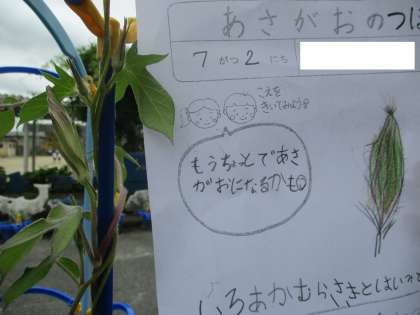 あさがおのつぼ
7がつ2にち
こえを
きいてみよう
もうちょっとであさ
がおになるかも
いろあかむらさきとはいみど